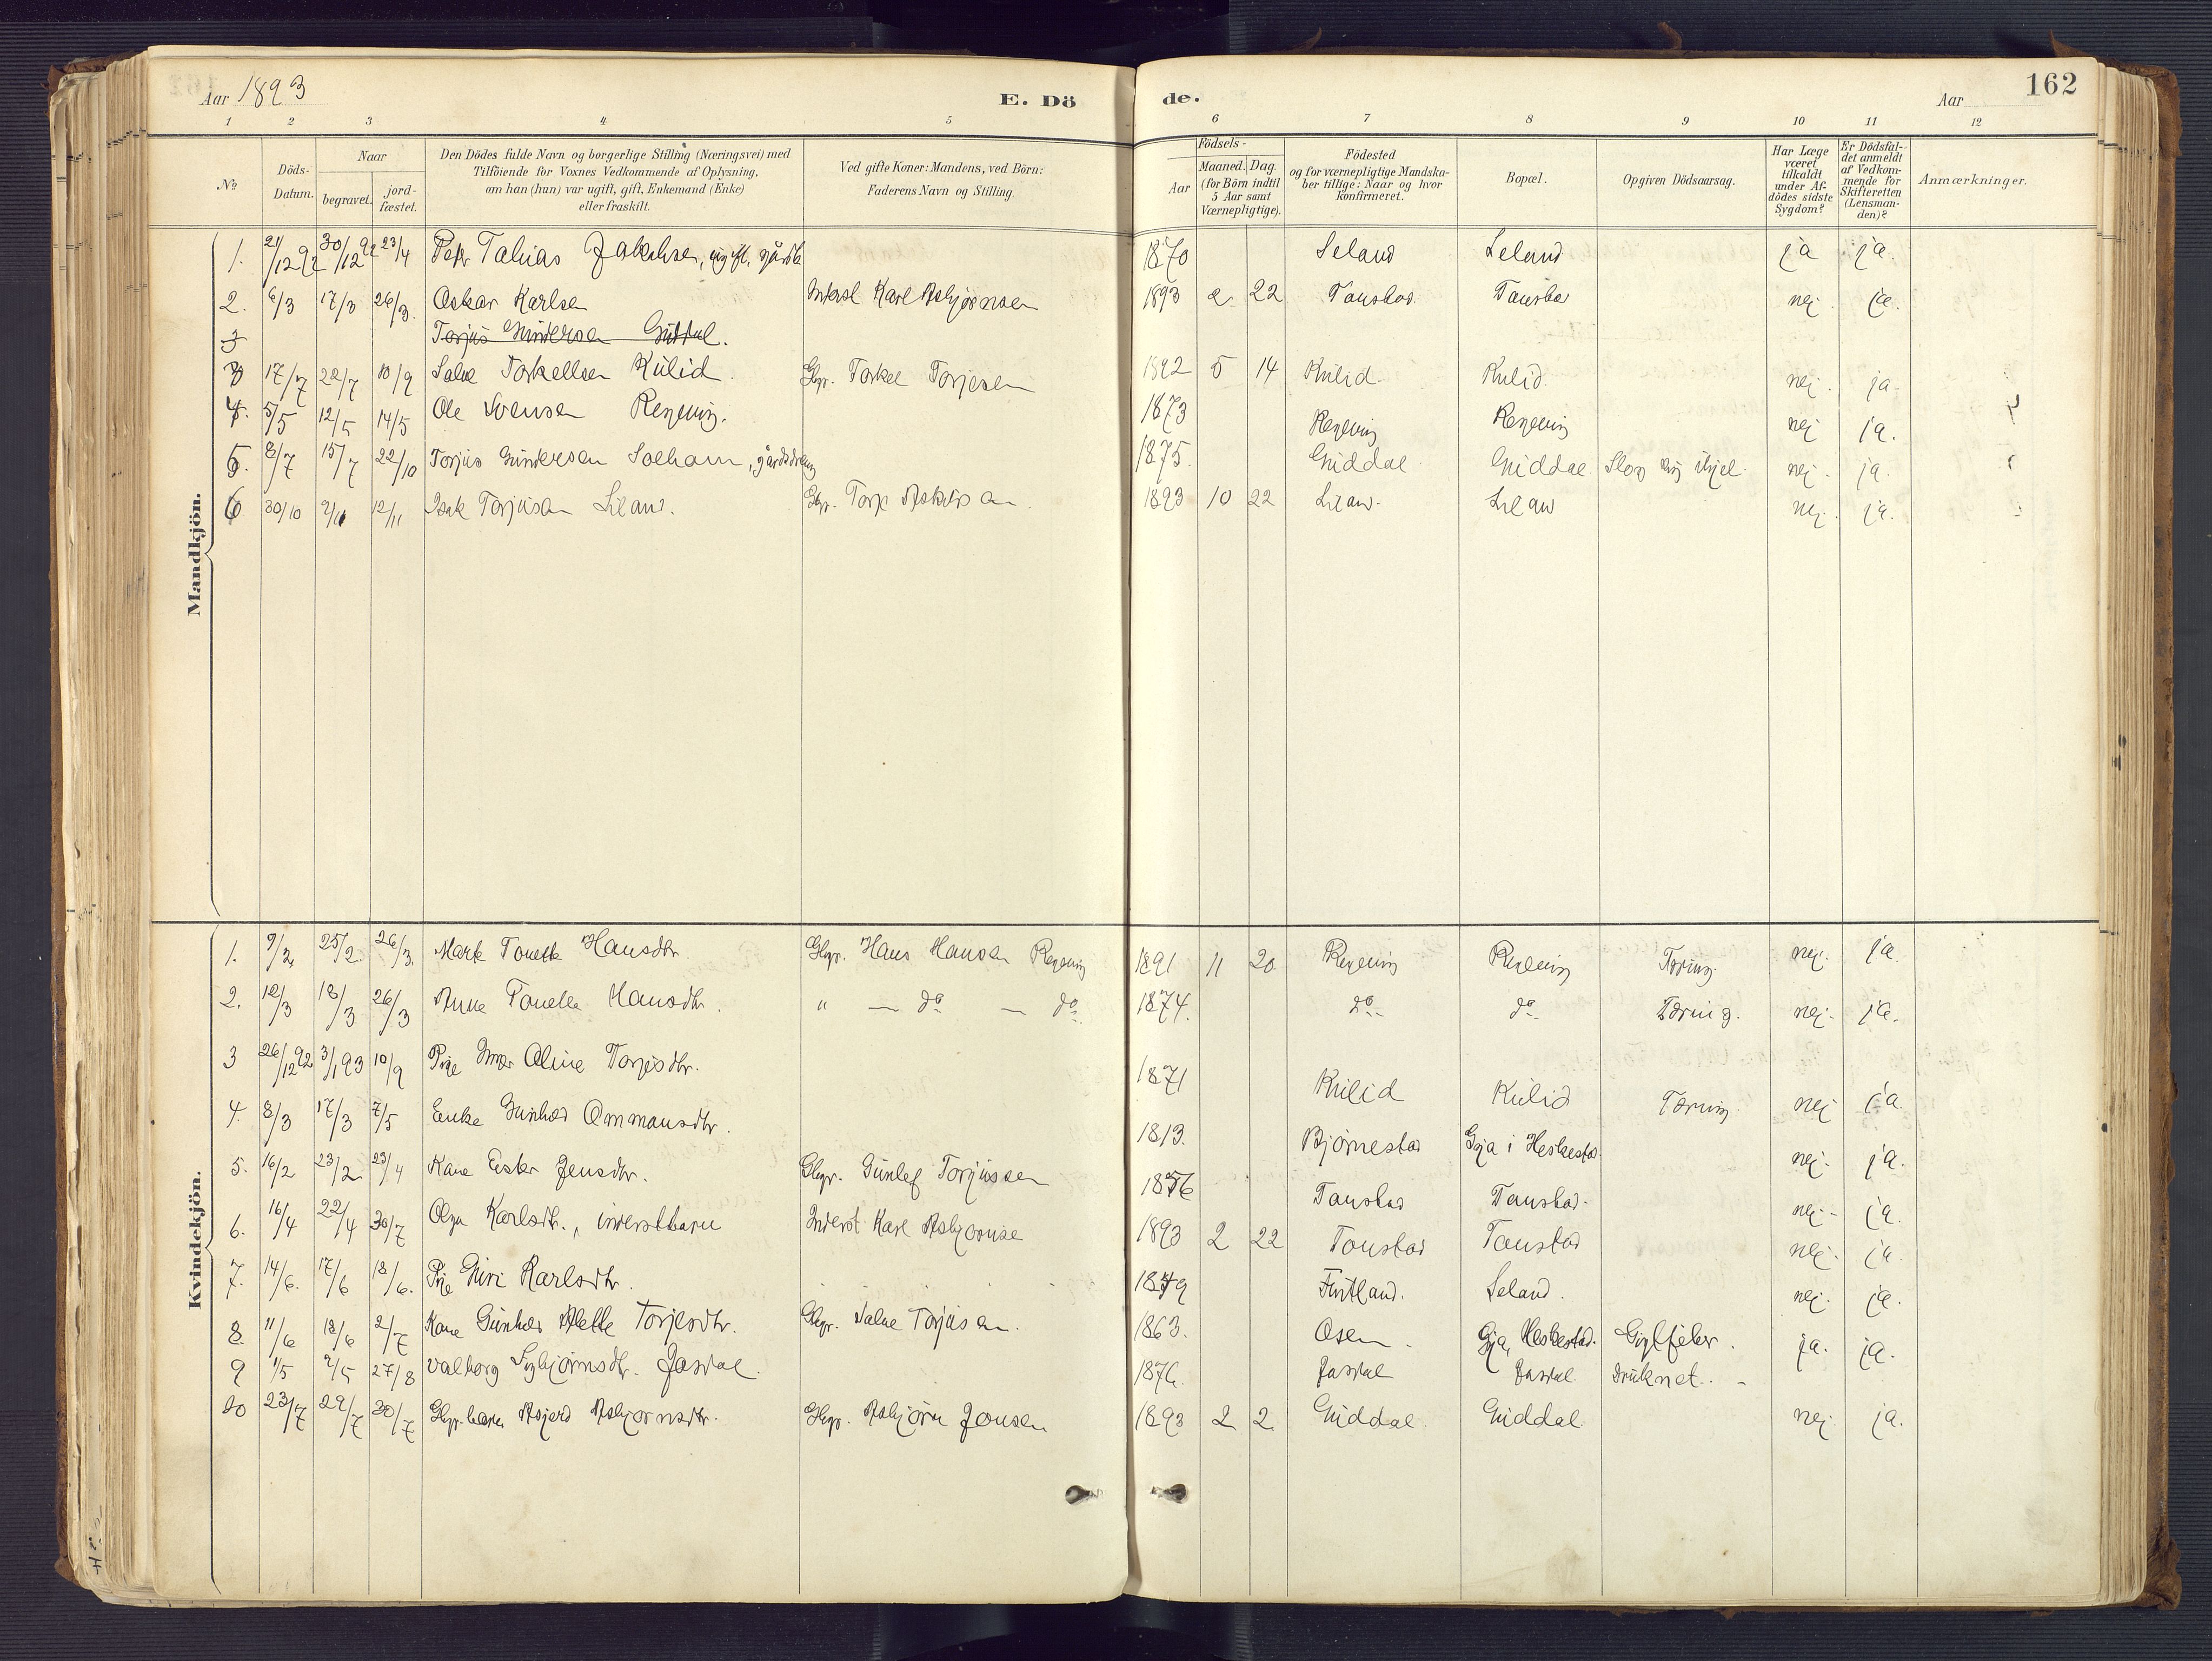 Aar 1893 E. Dö de. Aar 162
1 2 3 4 5 6 7 8 9 10 11 12
No
Döds-Datum.
Naar
begravet.
jord-fæstet.
Den Dödes fulde Navn og borgerlige Stilling (Næringsvei) med
Tilföiende for Voxnes Vedkommende af Oplysning,
om han (hun) var ugift, gift, Enkemand (Enke)
eller fraskilt.
Ved gifte Koner: Mandens, ved Börn:
Faderens Navn og Stilling.
Födsels-
Aar
Maaned. Dag.
(for Börn indtil
5 Aar samt
Værnepligtige).
Födested
og for værnepligtige Mandska-
ber tillige: Naar og hvor
konfirmeret.
Bopæl.
Opgiven Dödsaarsag.
Har Læge
været
tilkaldt
under Af-
dödes sidste
Sygdom?
Er Dödsfal-
det anmeldt
af Vedkom-
mende for
Skifteretten
(Lensman-
den)?
Anmærkninger.
Mandkjön.
1. 21/12 92 30/12 92 23/4 Peter Tobias Jakobsen, ugift, 1870 Leland Leland ja ja.
2. 6/3 17/3 26/3. Oskar Karlsen Inderst Karl Asbjørnsen 1893 2 22 Tonstad Tonstad nej ja.
3 Torjus Gundersen Guddal.
3 17/7 22/7 10/9 Salve Torkellsen Kulid. Gbgr. Torkel Torjesen 1892 5 14 Kulid. Kulid. nej. ja.
4. 5/5 12/5 14/5 Ole Svensen Regevig. 1873 Regevig Regevig nej ja.
5. 8/7 15/7 22/10 Torjus Gundersen Solhom, gårddreng 1875. Guddal Guddal. Slog sig ihjel. nej. ja.
6 30/10 9/11 12/11 Isak Torjusen Leland. Gbgr. 1893 10 22 Leland. Leland nej. ja.
Kvindekjön.
1. 9/2. 25/2. 26/3. Marte Tonette Hansdtr. Gbgr. Hans Hansen Regevig 1891 11 20. Regevig Regevig Tæring. nej. ja.
2. 12/3 18/3 26/3 Anna Tonette Hansdtr. " — do — do. 1874. do do Tæring. nej. ja.
3 26/12 92 3/1 93 10/9 Pige Aline Torjesdtr. 1871 Kulid Kulid Tæring. nej ja
4. 8/3 17/3 7/5 Enke Gunhild Ommansdtr. 1813. Bjørnestad Gya i Heskestad. nej. ja.
5. 16/2 23/2 23/4 Kone Ester Jensdtr. Gbgr. Gunlef Torjussen 1876 Tonstad Tonstad. nej. ja.
6. 16/4 22/4 30/7 Olga Karlsdtr., inderstbarn Inderst Karl Asbjørnse 1893 2 22 Tonstad Tonstad nej. ja.
7. 14/6. 17/6 18/6. Pige Guri Karlsdtr. 1879 Leland. nej. ja.
8. 11/6 18/6 2/7 Kone Gunhild Mette Torjesdtr. Gbgr. Salve Torjusen. 1863. Osen. Gya, Heskestad. Gigtfeber. ja. ja.
9 1/5 9/5 27/8 Valborg Sigbjørnsdtr. Josdal. 1876. Josdal Josdal. Druknet.
10 23/7 29/7 30/7 Gbgr. barn Asgjerd Asbjørnsdtr. Gbgr. Asbjørn Jonsen 1893 2 2 Guddal. Guddal. nej ja.